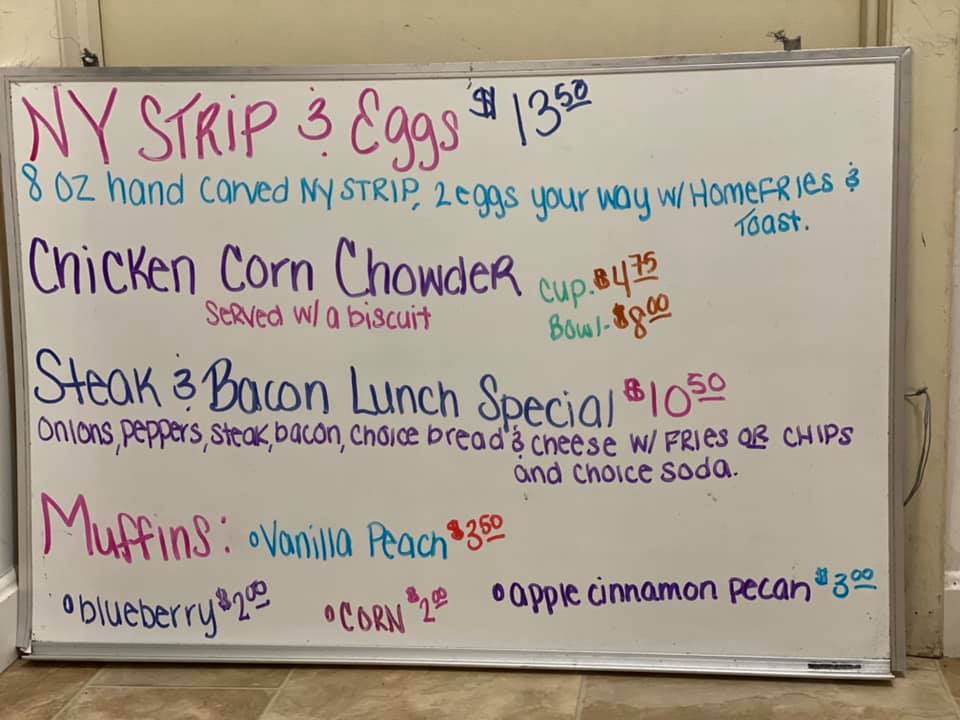 NY STRIP & Eggs $13.50
8 oz hand carved NY STRIP, 2 eggs your way w/ HOMEFRIES &
Toast.
Chicken Corn Chowder Cup. $4.75
Served w/ a biscuit Bowl- $8.00
Steak & Bacon Lunch Special $10.50
onions, peppers, steak, bacon, choice bread & cheese w/ FRIES OR CHIPS
and choice soda.
Muffins: • Vanilla Peach $3.50
• blueberry $2.00 • CORN $2.00 • apple cinnamon pecan $3.00